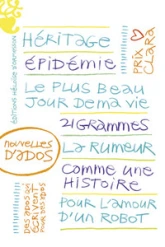 HÉRITAGE
ÉPIDÉMIE
LE PLUS BEAU
JOUR DE MA VIE
21 GRAMMES
LA RUMEUR
COMME UNE
HISTOIRE
POUR L'AMOUR
D'UN ROBOT
PRIX
CLARA
NOUVELLES
D'ADOS
DES ADOS QUI
ÉCRIVENT
POUR DES ADOS